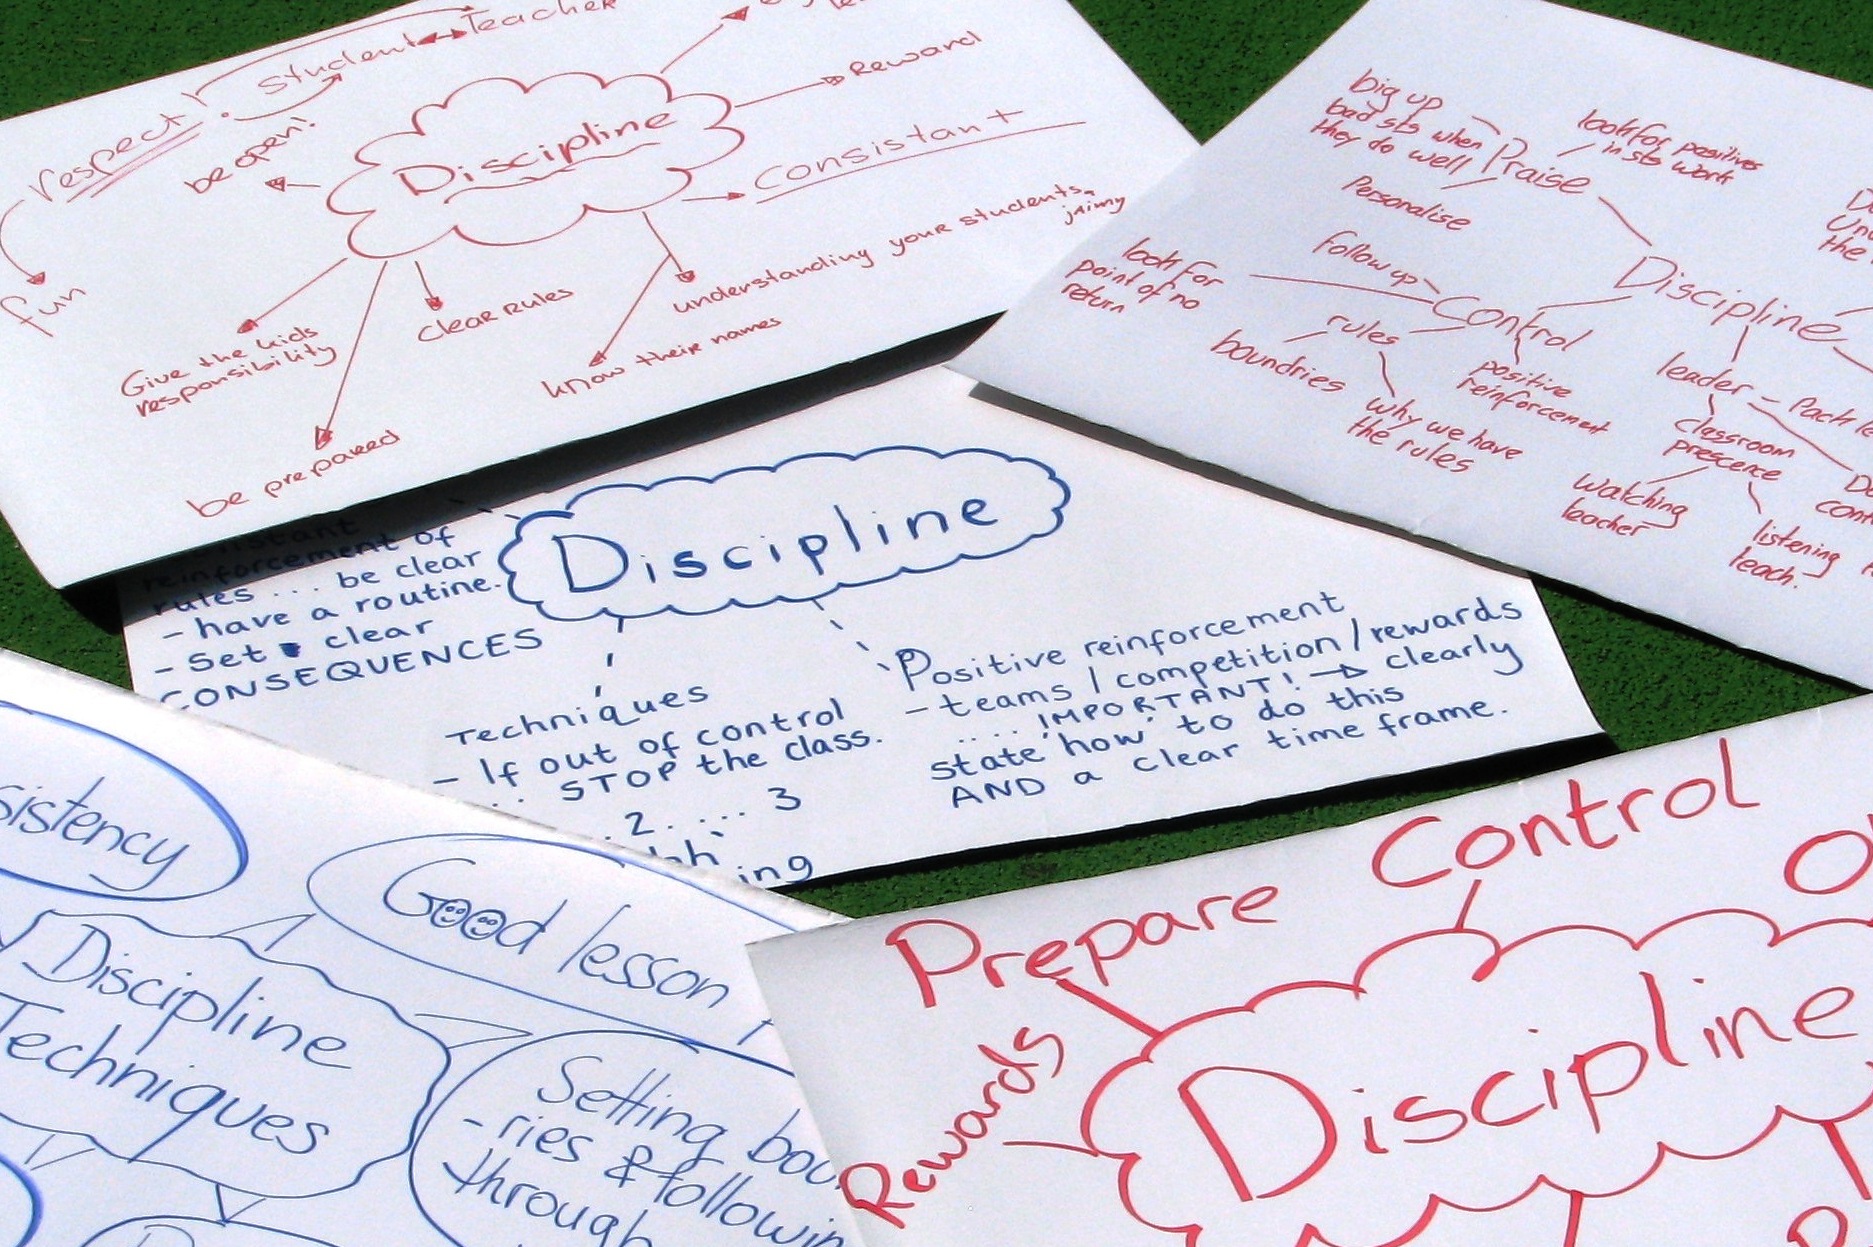 respect
student
Teacher
be open!
fun
Discipline
Reward
Consistant
understanding your students
jaimy
know their names
clear rules
Give the kids
responsibility
be prepared
big up
bad sts when
they do well
Praise
look for positives
in sts work
Personalise
Discipline
follow up
Control
look for
point of no
return
rules
boundries
why we have
the rules
positive
reinforcement
leader
classroom
prescence
watching
teacher
listening
teach.
Discipline
reinforcement of
rules ... be clear
- have a routine.
- Set clear
CONSEQUENCES
Techniques
- If out of control
... STOP the class.
. 2 .... 3
Positive reinforcement
- teams / competition / rewards
.... IMPORTANT! → clearly
state 'how' to do this
AND a clear time frame.
Good lesson
Discipline
Techniques
Setting bou
- ries & following
through
Prepare
Control
Rewards
Discipline